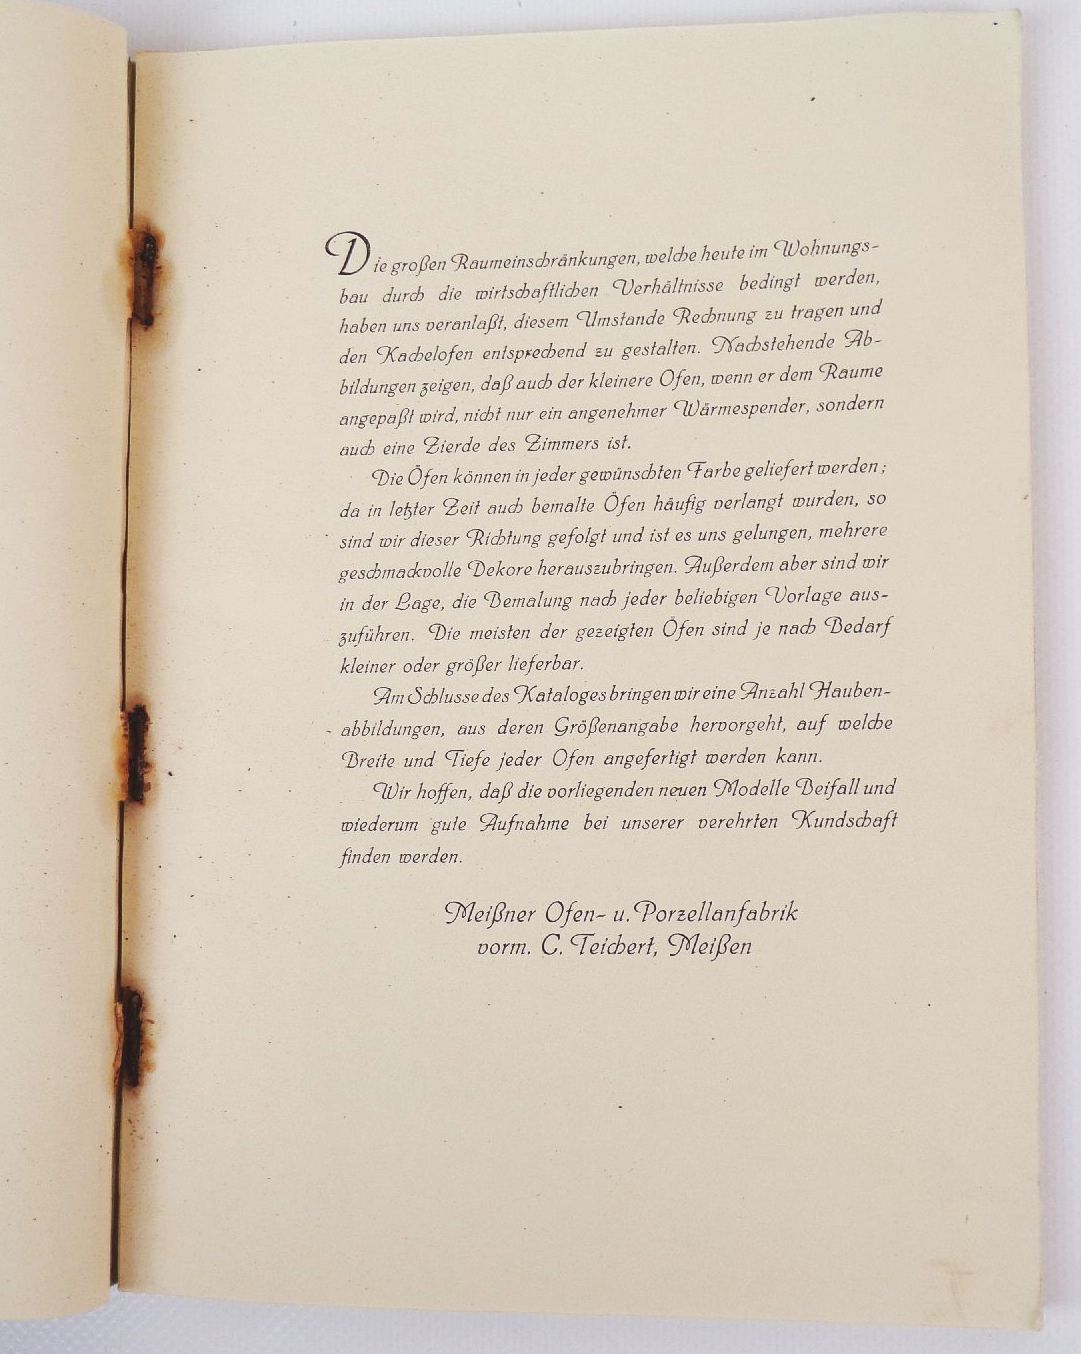 Die großen Raumeinschränkungen, welche heute im Wohnungs-
bau durch die wirtschaftlichen Verhältnisse bedingt werden,
haben uns veranlaßt, diesem Umstande Rechnung zu tragen und
den Kachelofen entsprechend zu gestalten. Nachstehende Ab-
bildungen zeigen, daß auch der kleinere Ofen, wenn er dem Raume
angepaßt wird, nicht nur ein angenehmer Wärmespender, sondern
auch eine Zierde des Zimmers ist.
Die Öfen können in jeder gewünschten Farbe geliefert werden;
da in letzter Zeit auch bemalte Öfen häufig verlangt wurden, so
sind wir dieser Richtung gefolgt und ist es uns gelungen, mehrere
geschmackvolle Dekore herauszubringen. Außerdem aber sind wir
in der Lage, die Bemalung nach jeder beliebigen Vorlage aus-
zuführen. Die meisten der gezeigten Öfen sind je nach Bedarf
kleiner oder größer lieferbar.
Am Schlusse des Kataloges bringen wir eine Anzahl Hauben-
abbildungen, aus deren Größenangabe hervorgeht, auf welche
Breite und Tiefe jeder Ofen angefertigt werden kann.
Wir hoffen, daß die vorliegenden neuen Modelle Beifall und
wiederum gute Aufnahme bei unserer verehrten Kundschaft
finden werden.
Meißner Ofen- u. Porzellanfabrik
vorm. C. Teichert, Meißen